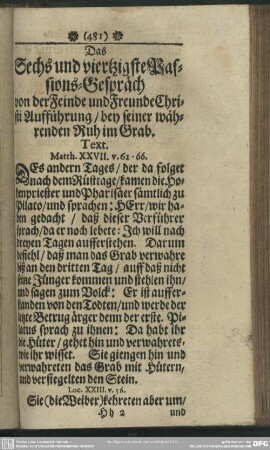 (481)
Das
Sechs und viertzigste Pas-
sions-Gespräch
von der Feinde und Freunde Chri-
sti Aufführung / bey seiner wäh-
renden Ruh im Grab.
Text.
Matth. XXVII. v. 63-66.
DEs andern Tages / der da folget
nach dem Rüsttage / kamen die Ho-
henpriester und Pharisäer sämtlich zu
Pilato / und sprachen: HErr / wir ha-
ben gedacht / daß dieser Verführer
sprach / da er noch lebete: Ich will nach
dreyen Tagen aufferstehen. Darum
befiehl / daß man das Grab verwahre
biß an den dritten Tag / auff daß nicht
seine Jünger kommen und stehlen ihn /
und sagen zum Volck: Er ist auffer-
standen von den Todten / und werde der
letzte Betrug ärger denn der erste. Pi-
latus sprach zu ihnen: Da habt ihr
die Hüter / gehet hin und verwahrets-
wie ihr wisset. Sie giengen hin und
verwahreten das Grab mit Hütern /
und versiegelten den Stein.
Luc. XXIII. v. 56.
Sie (die Weiber) kehreten aber um /
Hh 2 und